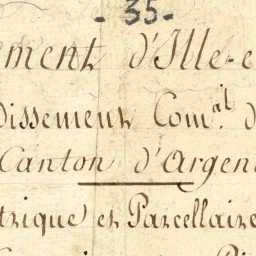 - 35 -
ement d'Ille-e
dissement Com.al d
Canton d'Argen
trique et Parcellaire